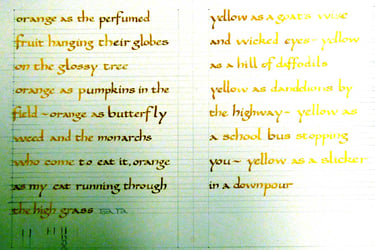 orange as the perfumed
fruit hanging their globes
on the glossy tree
orange as pumpkins in the
field - orange as butterfly
weed and the monarchs
who come to eat it, orange
as my cat running through
the high grass
yellow as a goat's wise
and wicked eyes - yellow
as a hill of daffodils
yellow as dandelions by
the highway - yellow as
a school bus stopping
you - yellow as a slicker
in a downpour